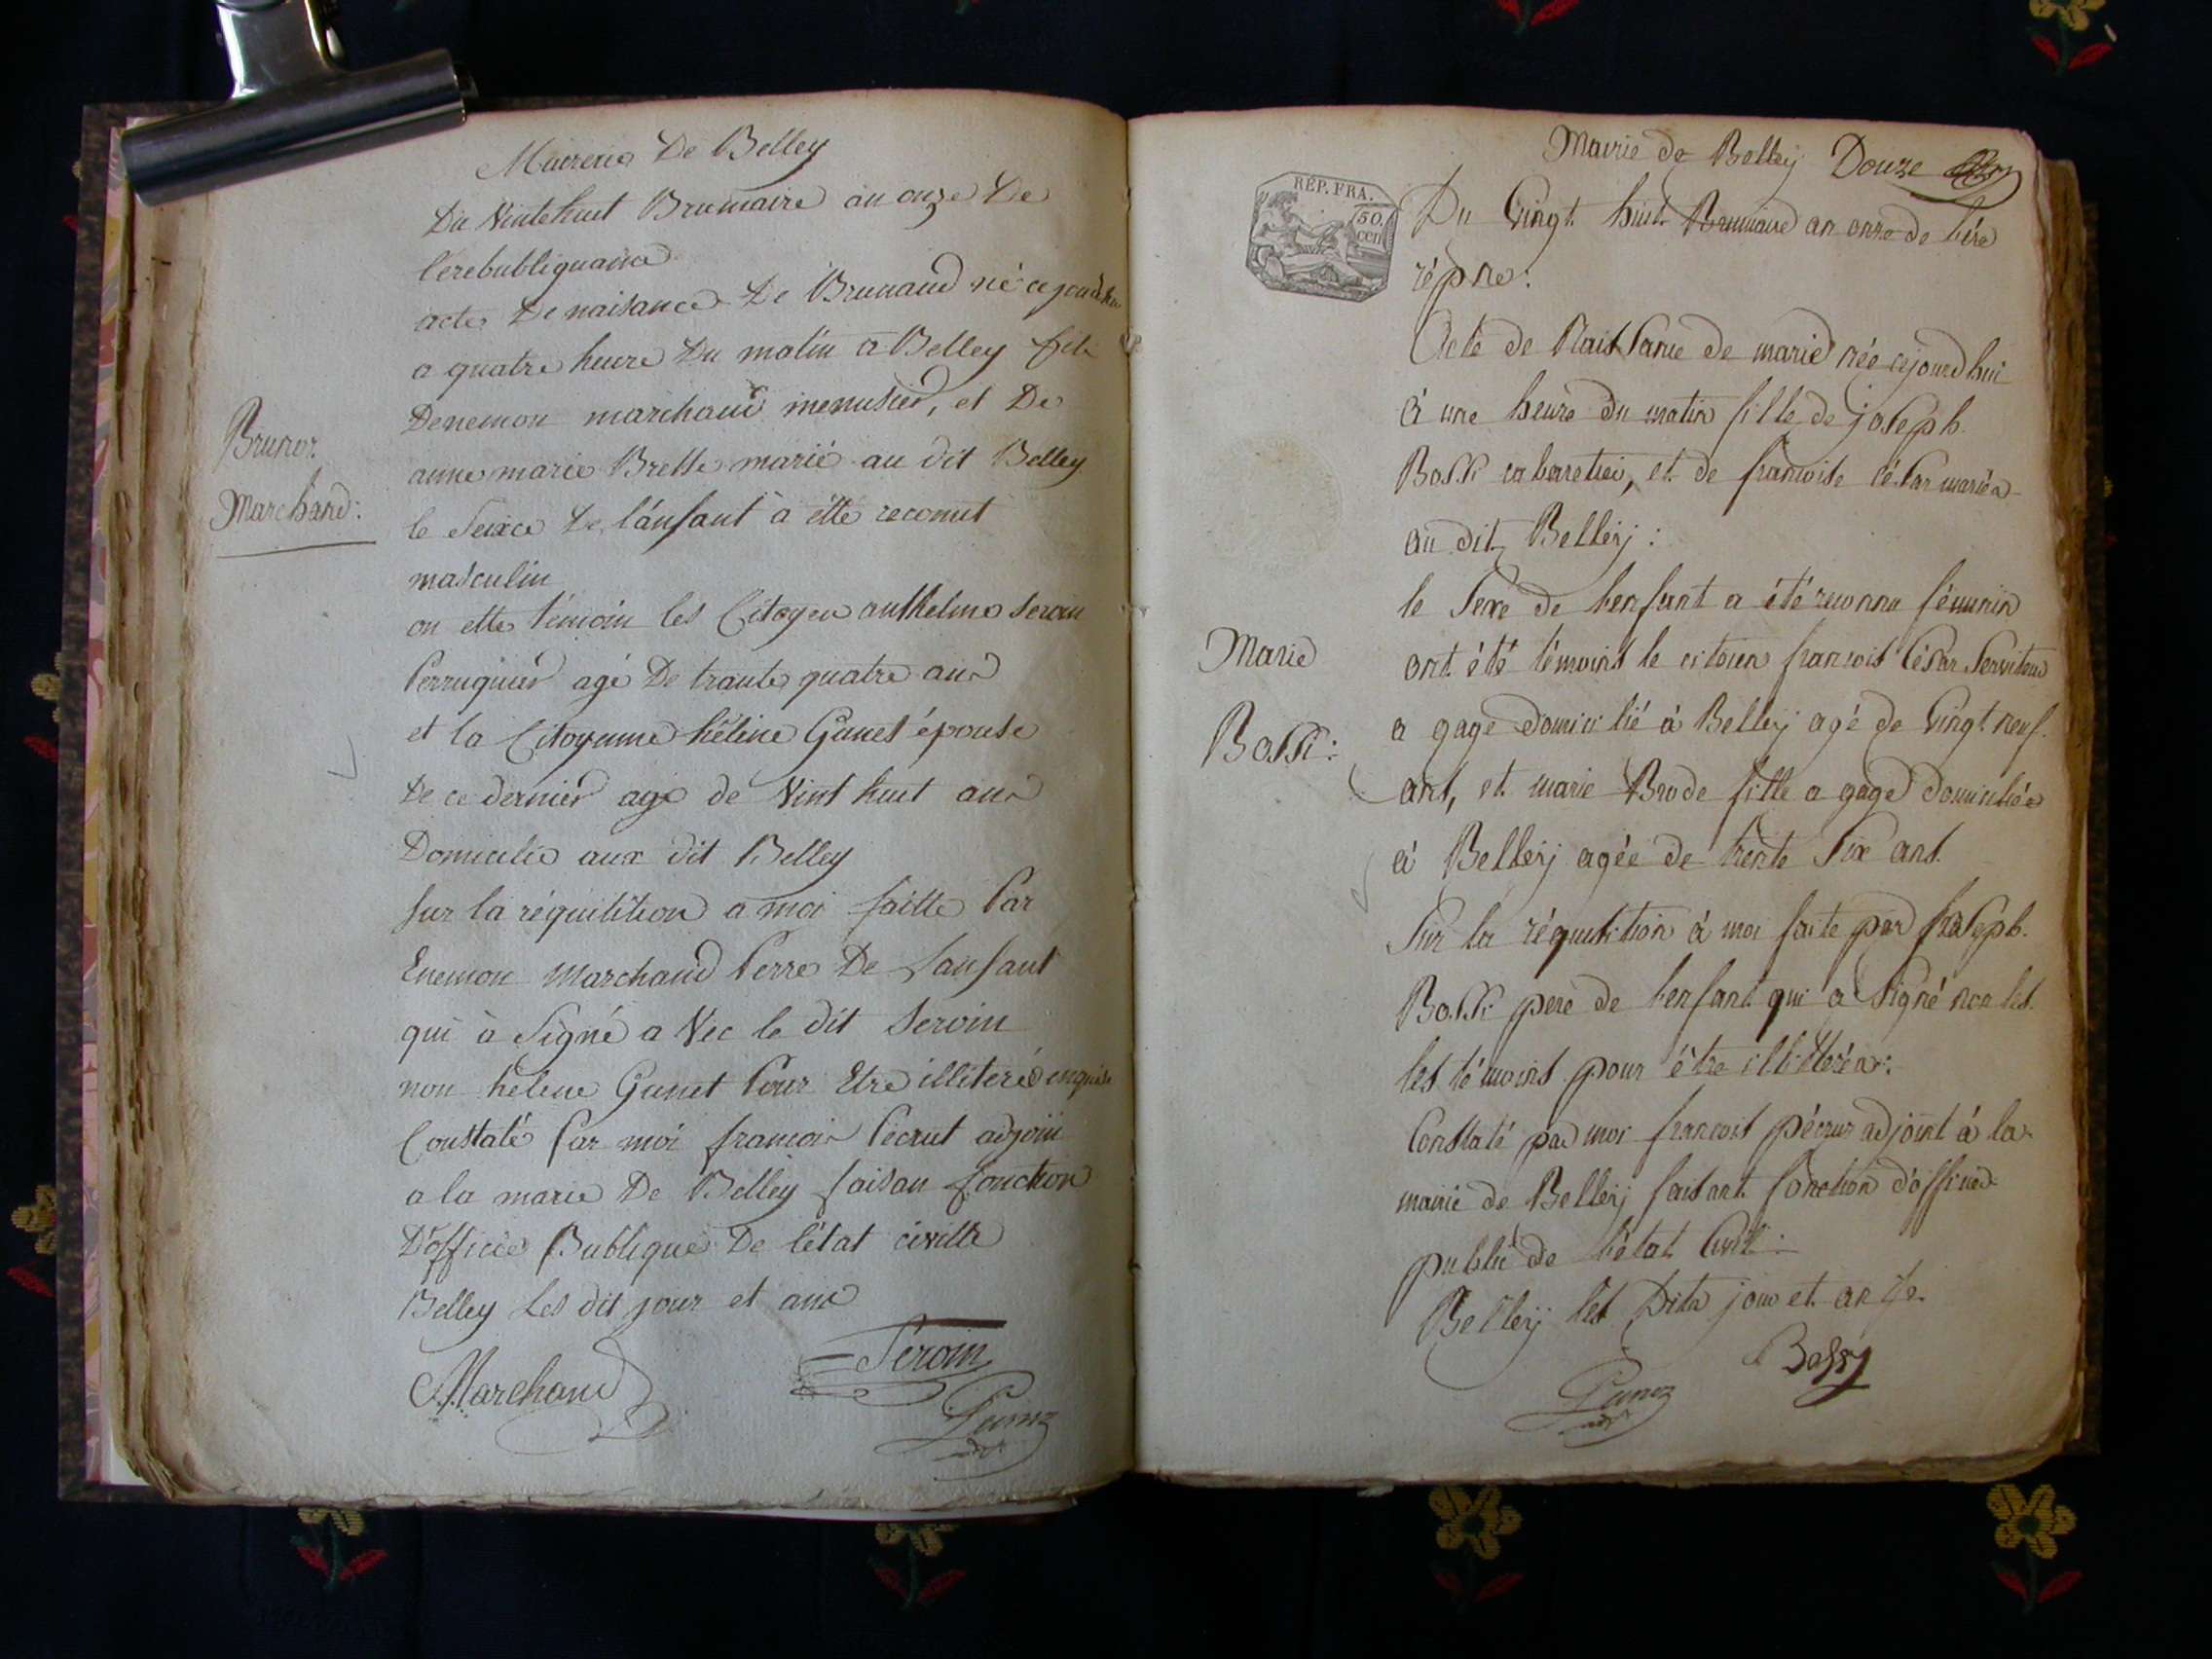 Maererie De Belley
Du Vintehuit Brumaire an onze De
l'erebubliquaine
acte De naisance De Brunaud né cejourdhui
a quatre heure Du matin a Belley fils
Denemon marchand menusier, et De
anne marie Brette marié au dit Belley
le Seixce De l'ánfant à étte reconut
masculin
on ette témoin les Citoyen anthelme Seroin
Perruquier agé De trante quatre ans
et la Citoyenne héléne Ganet épouse
De ce dernier age de Vint huit ans
Domicilié aux dit Belley
Sur la réquisition a moi faitte Par
Enemon Marchand Perre De Lanfant
qui à Signé a Vec le dit Seroin
non helene Ganet Pour Etre illiteré enquise
Constaté Par moi francois Pécrut adjoin
a la marie De Belley faisan fonction
D'officié Publique De l'état civille
Belley Les dit jour et ans
Marchand
Seroin
Brunor
Marchand:
Mairie de Belleÿ Douze
RÉP. FRA.
50.
cen
Du Vingt huit Brumaire an onze de l'ére
répne:
Acte de Naissance de marie née cejourdhui
à une heure du matin fille de joseph
Bossi cabaretier, et de francoise César mariés
au dit Belleÿ:
le Sexe de l'enfant a été reconnu féminin
ont été témoins le citoien francois César Serviteur
a gage domicilié à Belleÿ agé de Vingt neuf
ans, et marie Brode fille a gage domiciliée
à Belleÿ agée de trente Six ans.
Sur la réquisition à moi faite par joseph
Bossi pere de l'enfant qui a Signé non les
les témoins pour être illittérés:
Constaté par moi francois pécruz adjoint à la
mairie de Belleÿ faisant fonction d'officier
public de l'état Civil:
Belleÿ les Dits jour et an
Bossy
Marie
Bossi: